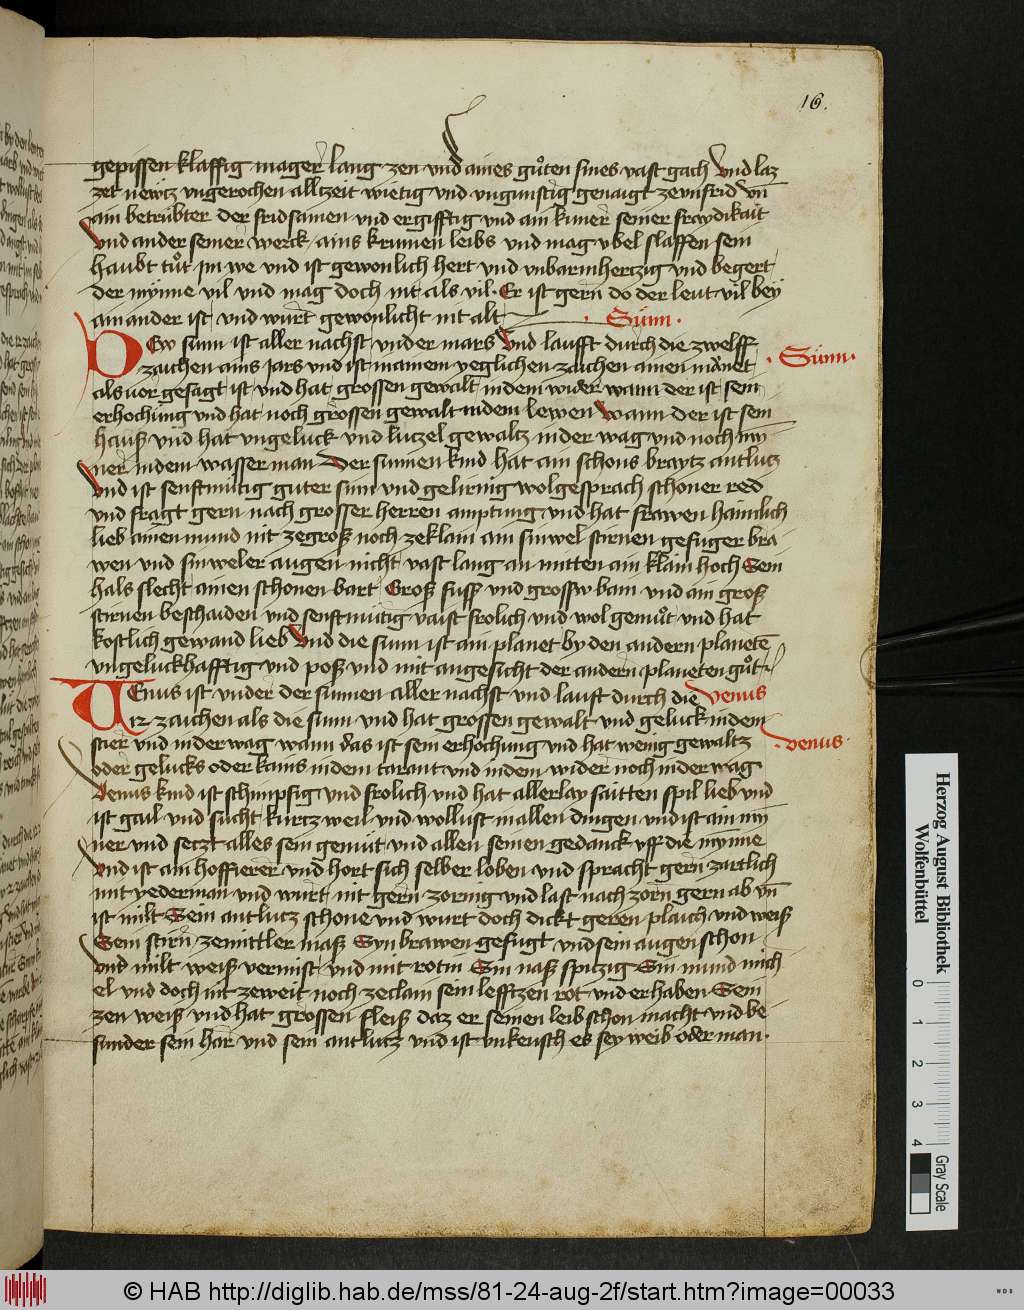 16.
gepissen klaffig mager lang zen vnd aines gůten sines vast gach Vnd laz
zet newtz vngerochen allizeit wietig vnd vngunstig genaigt ze vnfrid vn̄
ain betrübter der fridsamen vnd ergifftig vnd ain seiner fraydikait
Vnd ander seiner werck ains krumen leibs vnd mag vbel slaffen sein
haubt tůt jm we vnd ist gewonlich hert vnd vnbarmhertzig vnd begert
der mynne vil vnd mag doch nit als vil. Er ist gern do der leut vil bey
ain ander ist vnd wurt gewonlicht nit alt
. Sunn .
DEw sunn ist aller nachst vnder mars Vnd laufft durch die zwelff
zaichen ains jars vnd ist in ainem yeglichen zaichen ainen monet
. Sunn .
als vor gesagt ist vnd hat grossen gewalt in dem wider wann der ist sein
erhochung vnd hat noch grossen gewalt in dem lewen Wann der ist sein
hauß vnd hat vngeluck vnd lutzel gewaltz in der wag vnd noch myn
ner in dem wasser man Der sunnen kind hat ain schons braytz antlutz
Vnd ist senftmütig guter sinn vnd gelirnig wolgesprach schoner red
vnd fragt gern nach grosser herren amptung vnd hat frawen haimlich
lieb ainen mund nit ze groß noch ze klain ain sinwel stirnen gefuger bra
wen vnd sinweler augen nicht vast lang an mitten ain klain hoch Sein
hals slecht ainen schonen bart Groß fuss vnd grossw bain vnd ain groß
stirnen beschaiden vnd senftmütig vaist frolich vnd wol gemůt vnd hat
kostlich gewand lieb Vnd die sunn ist ain planet by den andern planetē
vngeluckhafftig vnd poß vnd mit angesicht der andern planeten gůt
VEnus ist vnder der sunnen aller nachst vnd lauft durch die Venus
12 zaichen als die sunn vnd hat grossen gewalt vnd geluck in dem
. venus .
stier vnd in der wag wann das ist sein erhochung vnd hat wenig gewaltz
oder gelucks oder kains in dem tarant vnd in dem wider noch in der wag
Venus kind ist schimpfig vnd frolich vnd hat allerlay saitten spil lieb vnd
ist gail vnd sucht kurtz weil vnd wollust in allen dingen vnd ist ain myn
ner vnd setzt alles sein gemüt vnd allen seinen gedanck vff die mynne
Vnd ist ain hoffierer vnd hort sich selber loben vnd spracht gern zartlich
mit yederman vnd wurt nit gern zornig vnd last nach zorn gern ab vn̄
ist milt Sein antlutz schone vnd wurt doch dickt geren plaich vnd weiß
Sein stirn ze mittler maß Syn brawen gefugt vnd sein augen schon
vnd milt weiß vermist vnd mit rotin Sin naß spitzig Sin mund mich
el vnd doch nit ze weit noch ze clain sein lefftzen rot vnd erhaben Sein
zen weiß vnd hat grossen fleiß daz er seinen leib schon macht vnd be
sunder sein har vnd sein antlutz vnd ist vnkeusch es sey weib oder man .
Herzog August Bibliothek
Wolfenbüttel
0 1 2 3 4
Gray Scale
© HAB http://diglib.hab.de/mss/81-24-aug-2f/start.htm?image=00033